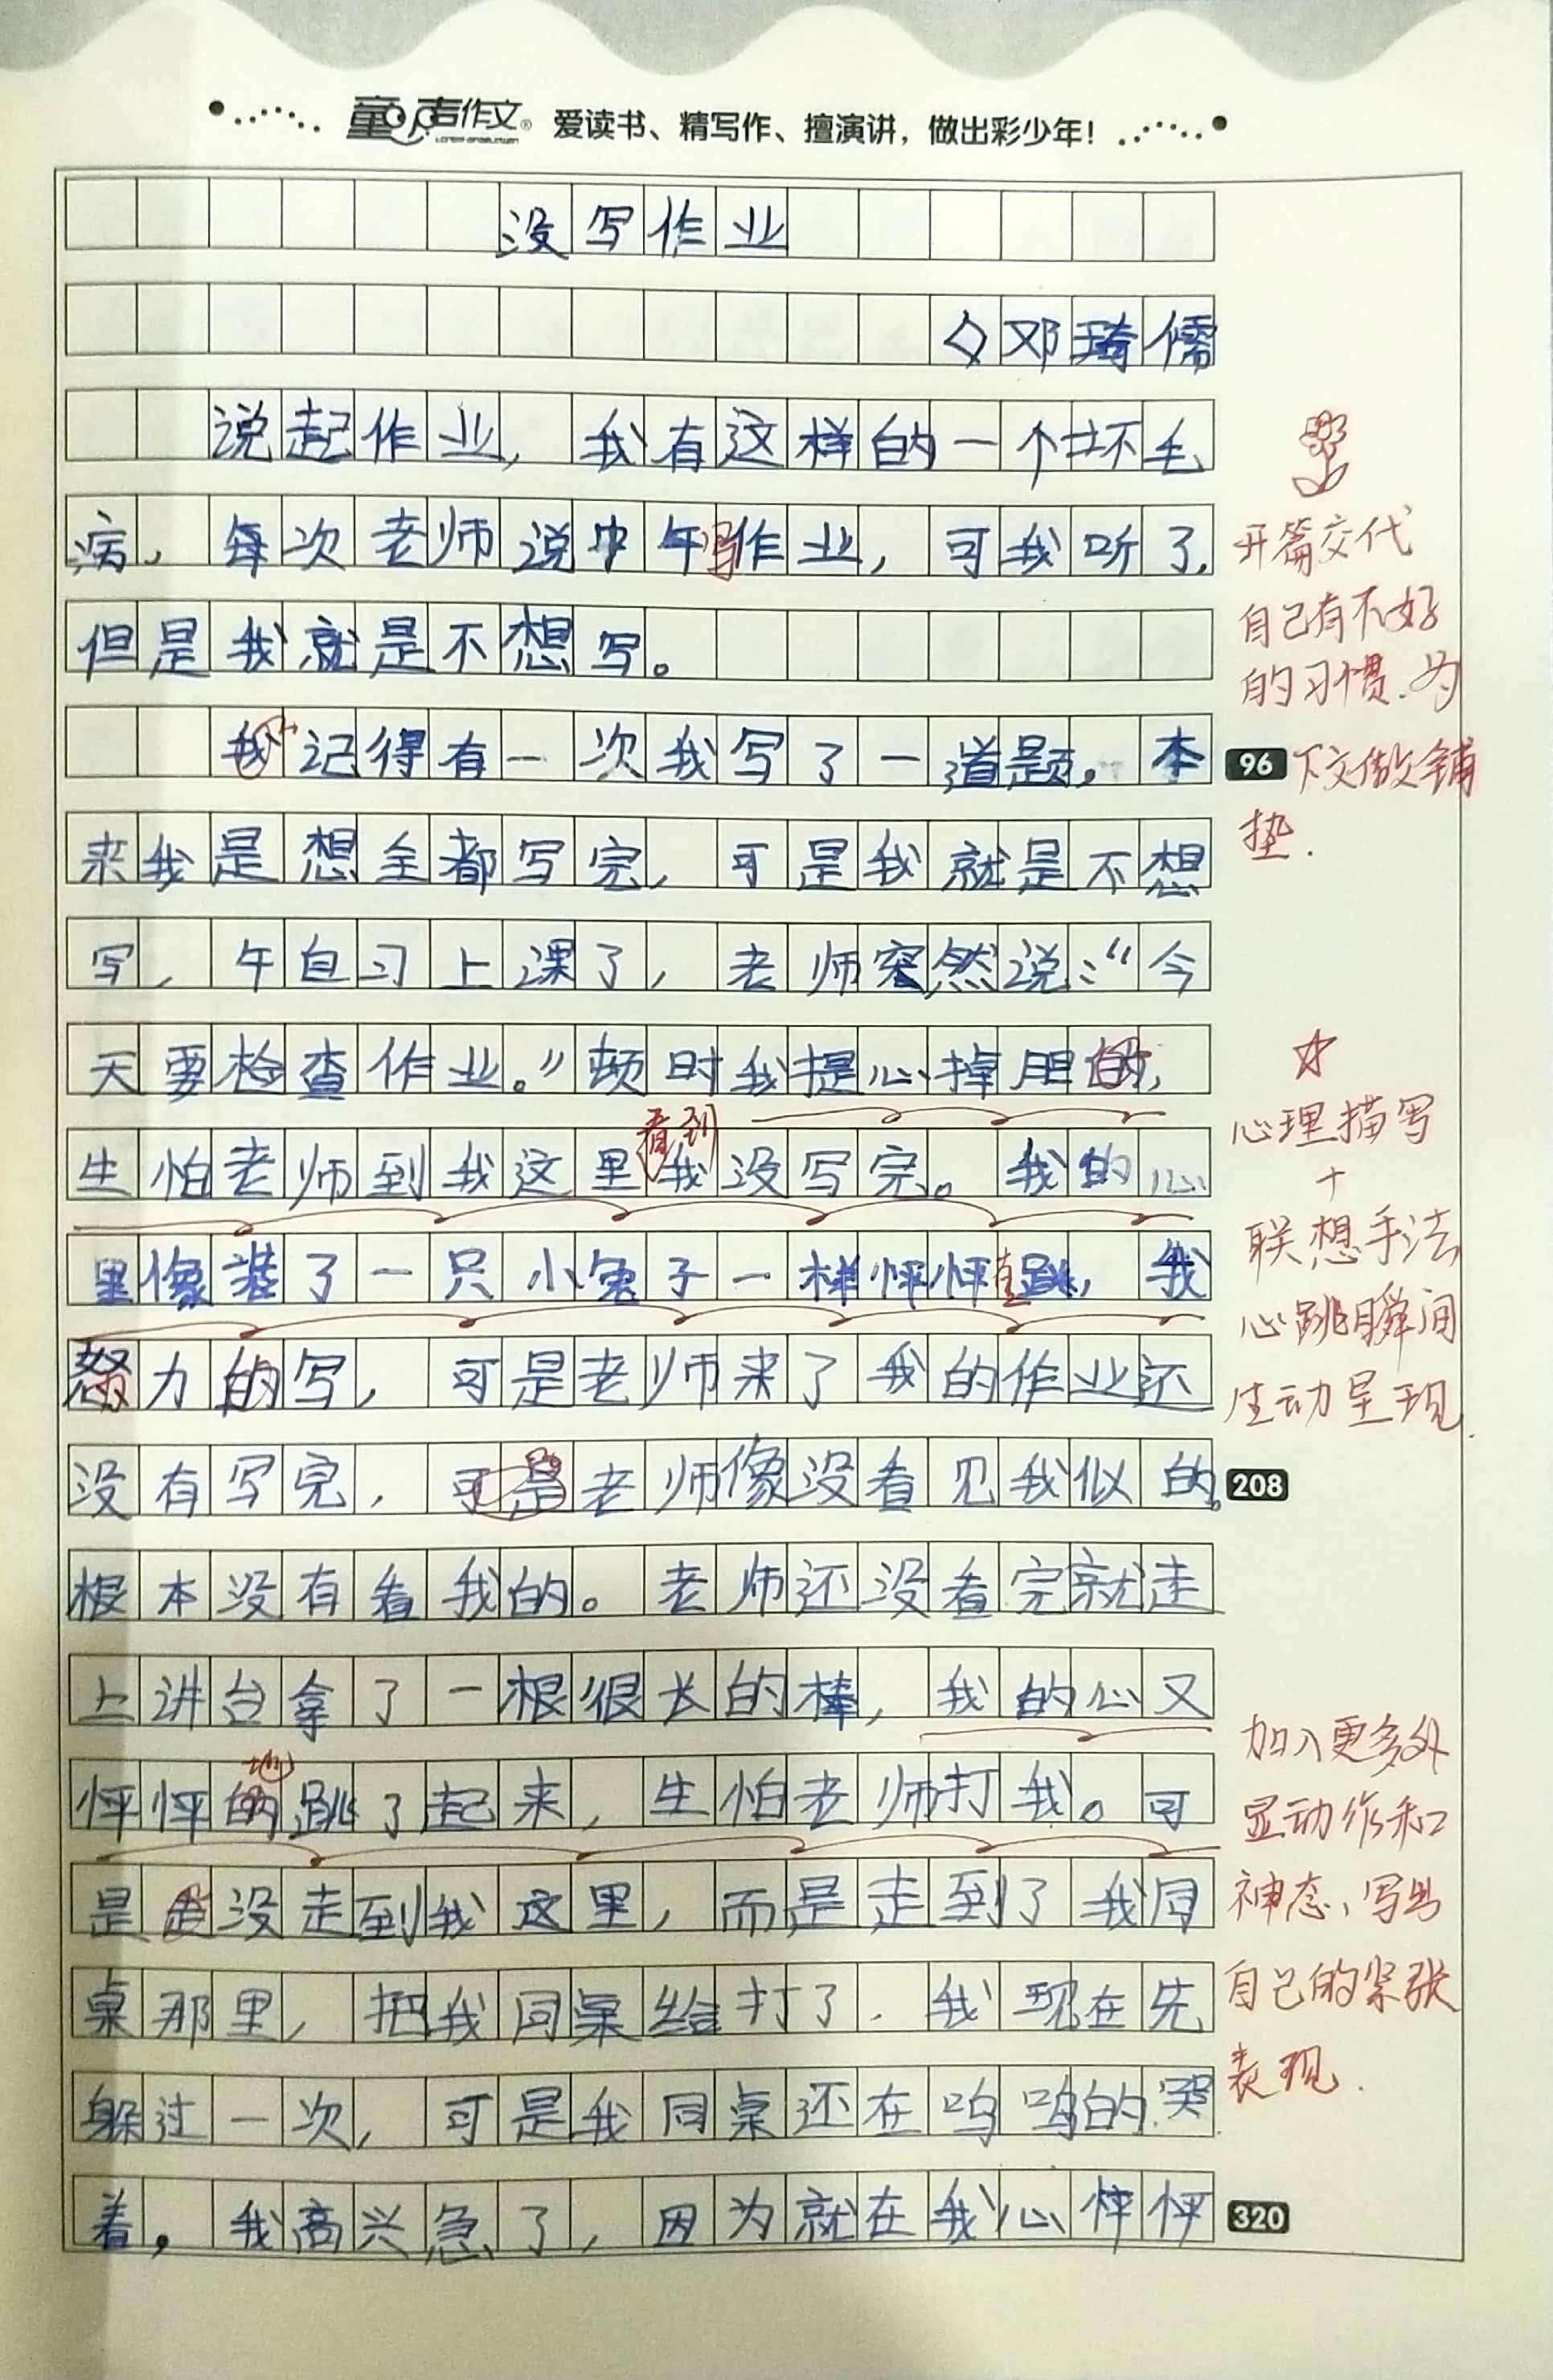 童声作文® 爱读书、精写作、擅演讲，做出彩少年！
没写作业
邓琦儒
说起作业，我有这样的一个坏毛
病，每次老师说中午写作业，可我听了，
但是我就是不想写。
我记得有一次我写了一道题，本
来我是想全都写完，可是我就是不想
写，午自习上课了，老师突然说：“今
天要检查作业。”顿时我提心掉胆的，
看到
生怕老师到我这里我没写完。我的心
里像装了一只小兔子一样怦怦直跳，我
努力的写，可是老师来了我的作业还
没有写完，可是老师像没看见我似的。
根本没有看我的。老师还没看完就走
上讲台拿了一根很长的棒，我的心又
地
怦怦的跳了起来，生怕老师打我。可
是走没走到我这里，而是走到了我同
桌那里，把我同桌给打了．我现在先
躲过一次，可是我同桌还在呜呜的哭
着，我高兴急了，因为就在我心怦怦
开篇交代
自己有不好
的习惯．为
96 下文做铺
垫．
心理描写
+
联想手法，
心跳瞬间
生动呈现．
208
加入更多外
显动作和
神态、写出
自己的紧张
表现．
320